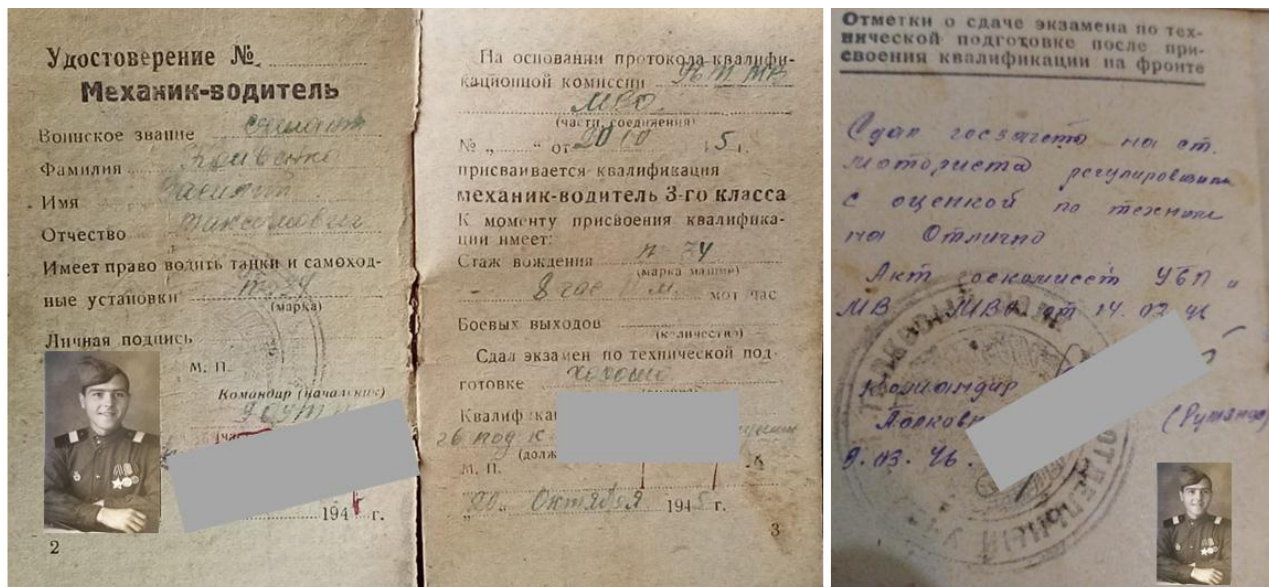 Удостоверение №
Механик-водитель
Воинское звание сержант
Фамилия Кривенко
Имя Василий
Отчество Максимович
Имеет право водить танки и самоход-
ные установки т-34
(марка)
Личная подпись
М. П.
Командир (начальник)
194 г.
2
На основании протокола квалифи-
кационной комиссии УБТ МВ
МВО
(части, соединения)
№ „ “ от 20 10 5 г.
присваивается квалификация
механик-водитель 3-го класса
К моменту присвоения квалифика-
ции имеет:
Стаж вождения т-34
(марка машин)
8 час м. мот час
Боевых выходов
(количество)
Сдал экзамен по технической под-
готовке хорошо
Квалифика
(долж
М. П.
„20„ Октября 1945 г.
3
Отметки о сдаче экзамена по тех-
нической подготовке после при-
своения квалификации на фронте
Сдал на ст.
моториста регулировщика
с оценкой по технике
на Отлично
Акт УБП и
МВ МВО от 14.02.46
Командир
Полковн
9.03.46.